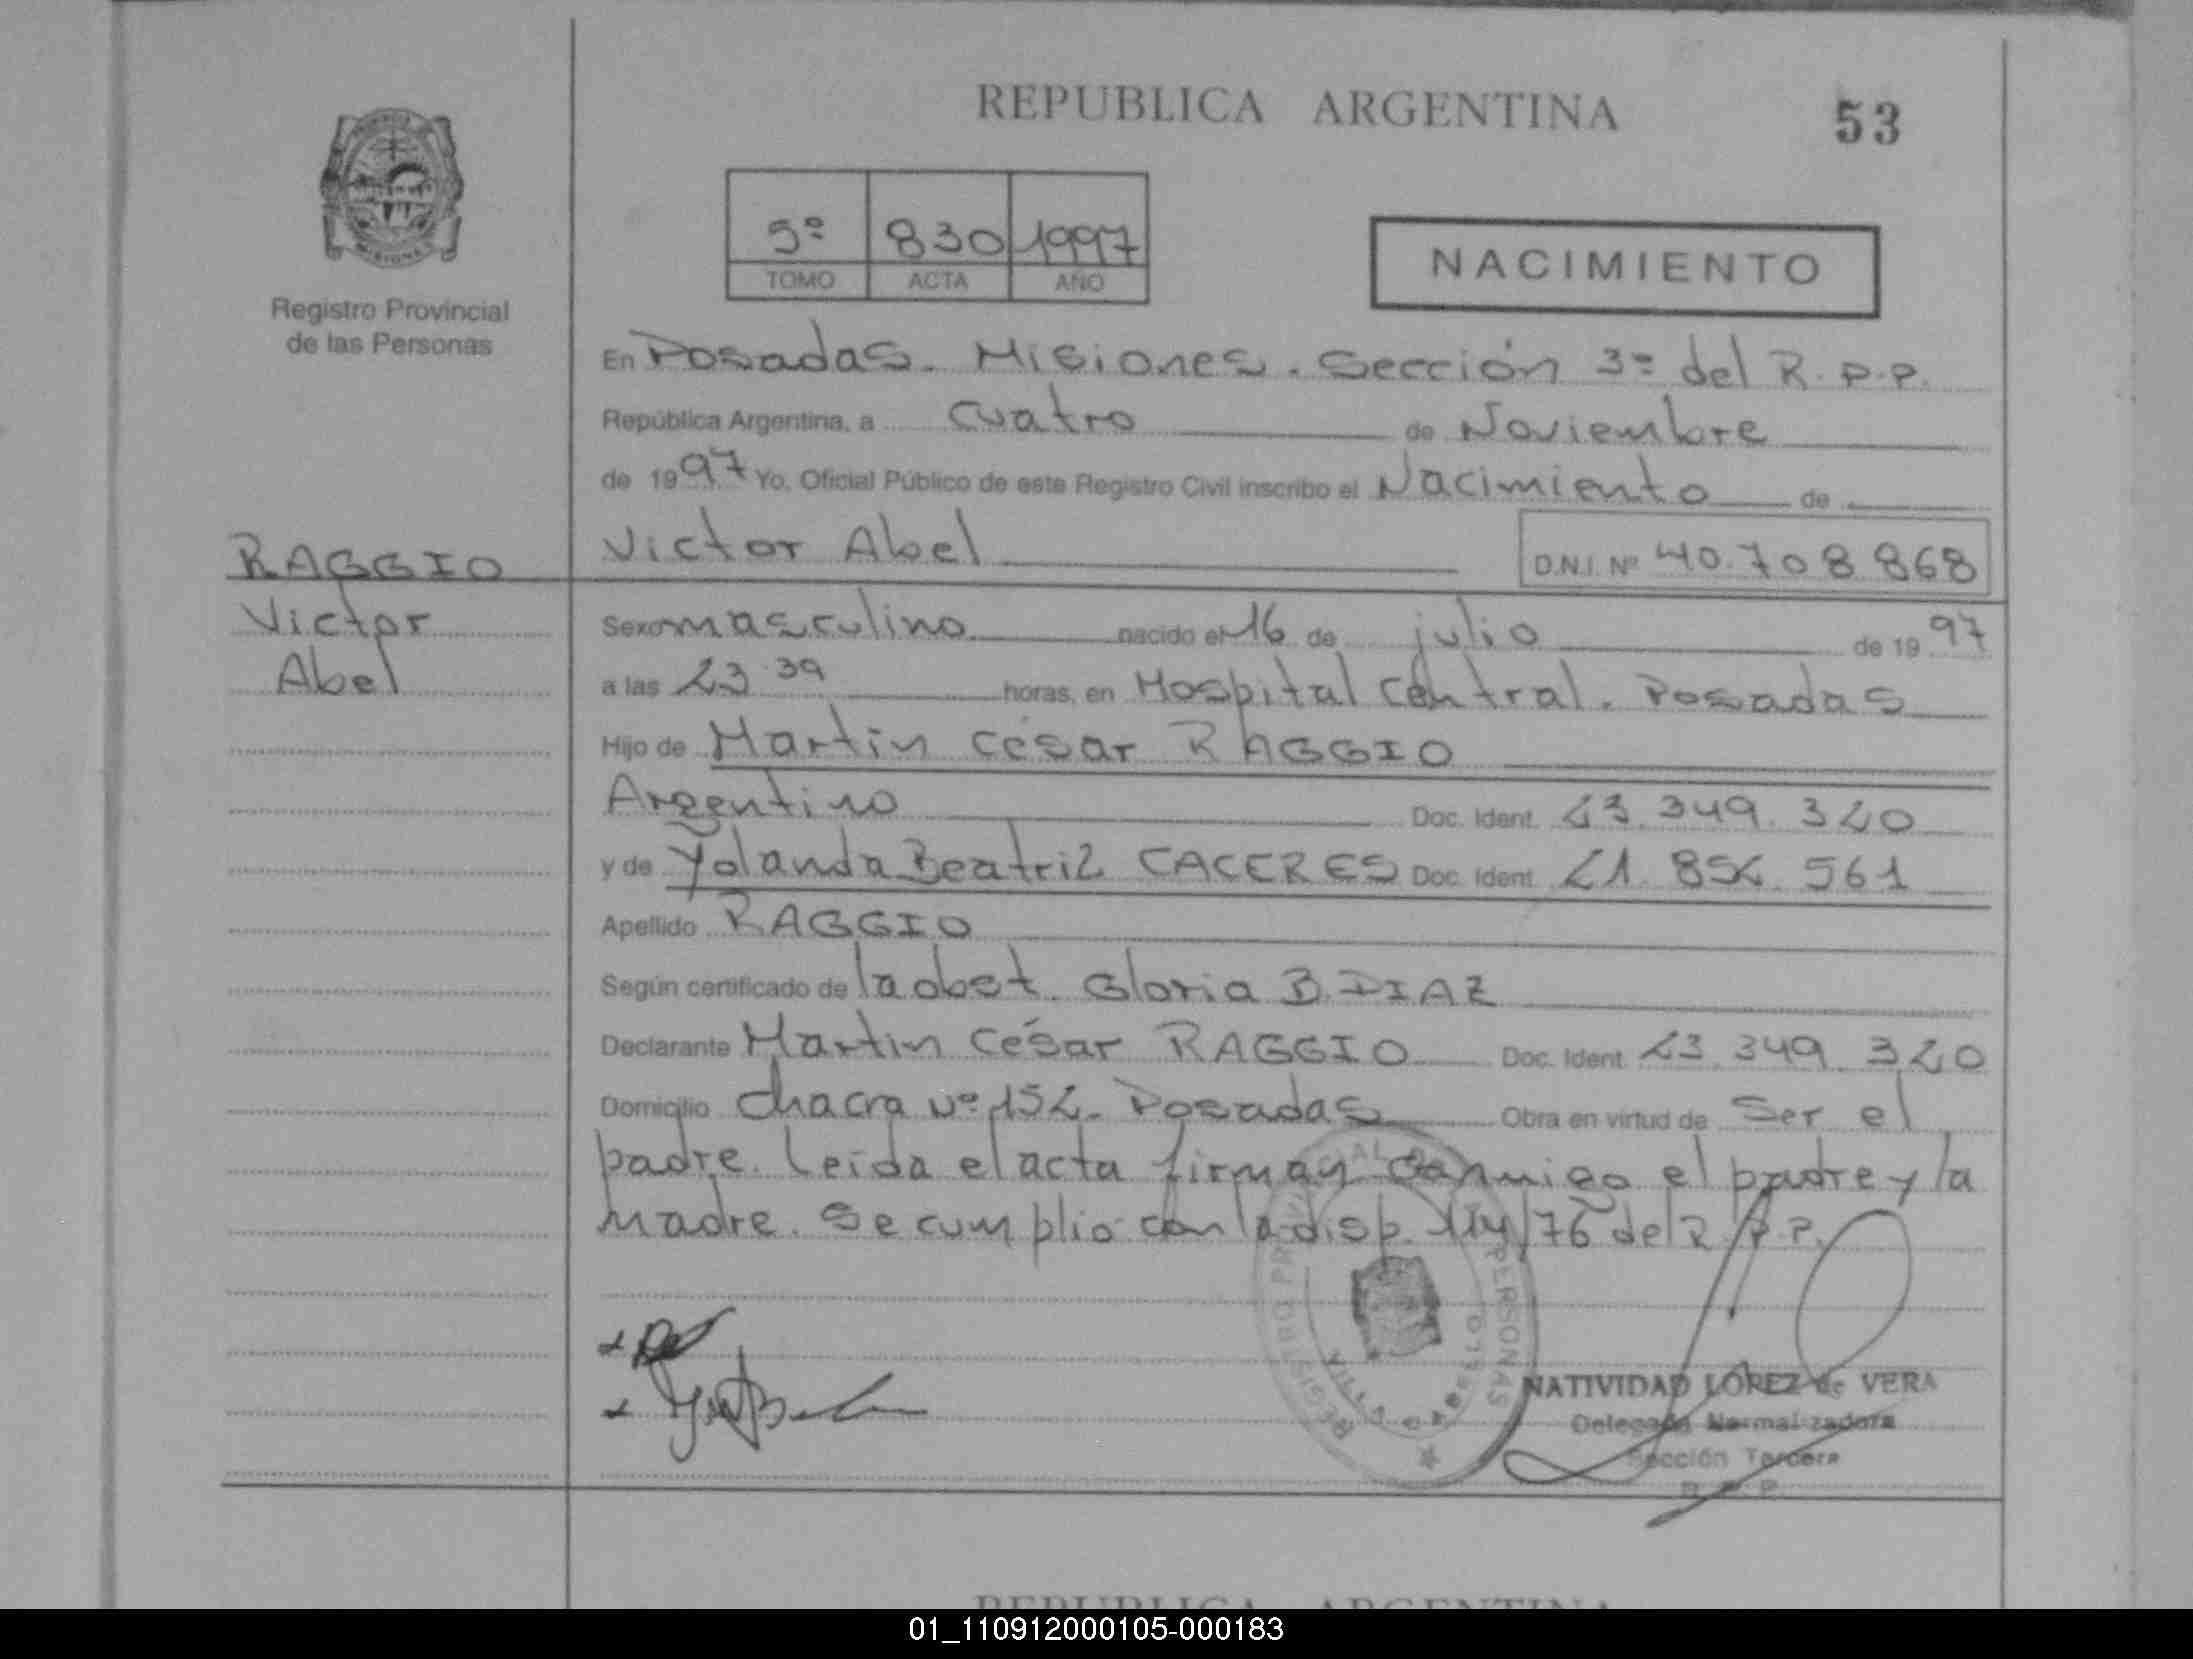 REPUBLICA ARGENTINA
53
5º 830 1997
TOMO ACTA AÑO
NACIMIENTO
Registro Provincial
de las Personas
En Posadas. Misiones. Sección 3º del R.P.P.
República Argentina, a cuatro de Noviembre
de 1997 Yo, Oficial Público de este Registro Civil inscribo el Nacimiento de
Victor Abel D.N.I. Nº 40.708.868
RAGGIO
Victor
Abel
Sexo masculino nacido el 16 de julio de 1997
a las 23 39 horas, en Hospital Central. Posadas
Hijo de Martin César RAGGIO
Argentino Doc. Ident. 23.349.320
y de Yolanda Beatriz CACERES Doc. Ident. 21.852.561
Apellido RAGGIO
Según certificado de la obst. Gloria B. DIAZ
Declarante Martin César RAGGIO Doc. Ident. 23.349.320
Domicilio Chacra Nº 152. Posadas Obra en virtud de Ser el
padre. Leída el acta firman conmigo el padre y la
madre. Se cumplió con la disp. 114/76 del R.P.P.
REGISTRO PROVINCIAL PERSONAS
VILLA CABELLO
NATIVIDAD LOPEZ de VERA
Delegada Normalizadora
Sección Tercera
R.P.P.
REPUBLICA ARGENTINA
01_110912000105-000183